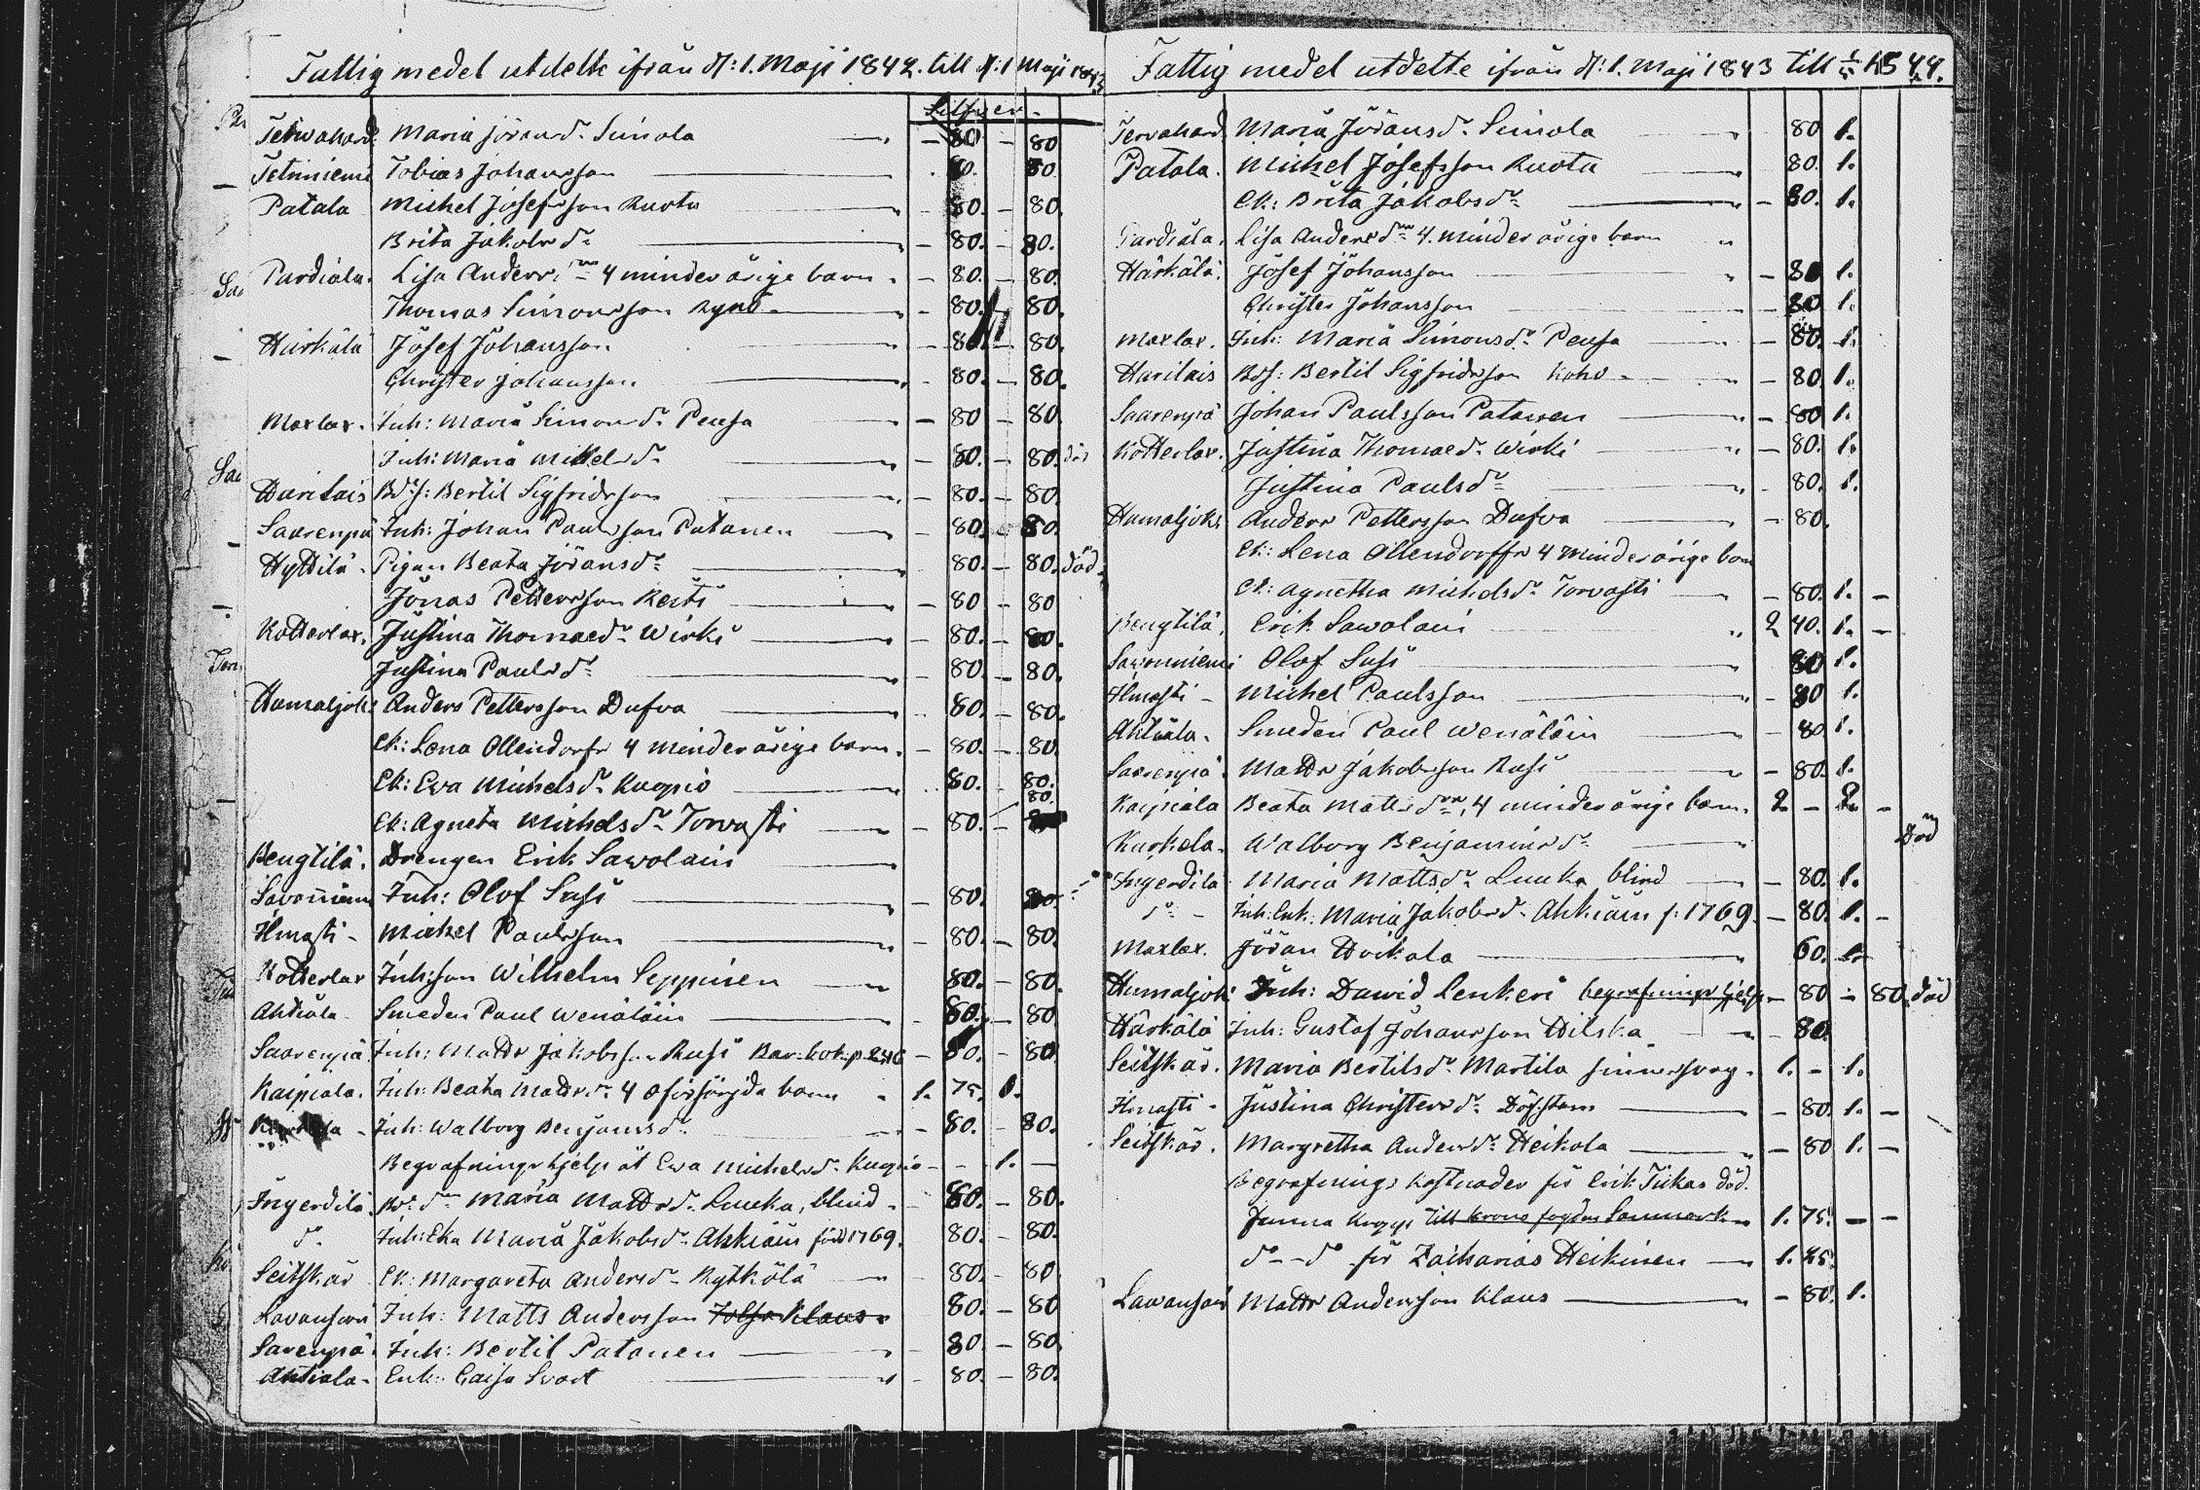 Fattig medel utdelte ifrån d: 1. Maji 1842. till d: 1 Maji 1843
Silfver.
Maria Jörand.r Simola — 80 — 80
Tobias Johansson 80. 80.
Patala Michel Josefsson Ruotu 80. — 80.
Brita Jakobs d.r — 80. — 80.
Pardiala. Lisa Anders 4 minderårige barn — 80. — 80.
Thomas Simonsson — 80. — 80.
Härkälä Josef Johansson — 80. — 80.
Christer Johansson — 80. — 80.
Maxlax. Inh: Maria Simons d.r Peusa — 80 — 80.
Inh: Maria Mickels d.r — 80. — 80. död
Haritais Bds: Bertil Sigfridsson — 80. — 80.
Saarenpä Inh: Johan Paulsson Patanen 80. — 80.
Hyttilä. Pigan Beata Jöransd.r 80. — 80. död.
Jonas Pettersson — 80 — 80
Kotterlax. Justina Thomaed.r Wirki — 80. — 80.
Justina Paulsd.r 80. — 80.
Humaljoki Anders Pettersson Dufva 80. — 80.
Ck: Lena Ollendorfs 4 minderårige barn. — 80. — 80.
Ck: Ewa Michelsd.r Kuopio 80. 80.
Ck: Agneta Michelsd.r Torvasti — 80. — 80.
Bengtilä. Drengen Erik Sawolain
Inh: Olof Susi — 80.
Ilmasti - Michel Paulsson 80. — 80.
Kotterlax Inh:son Wilhelm Seppinen 80. — 80.
Ahtiala Smeden Paul Wenäläin — 80. — 80
Saarenpä. Inh: Matts Jakobsson Rusi 80. — 80.
Kaipiala. Inh: Beata Matts d.r 4 oförsörgda barn 1. 75.
Inh: Walborg Benjamsd.r — 80. — 80.
Begrafningshjelp åt Ewa Michelsd.r Kuopio — 1. —
Ingerdilä Maria Mattsd.r Luuka, blind 80. — 80.
d.o Inh: Eka Maria Jakobsd.r Ahkiäin född 1769. 80. — 80.
Seitskär Ck: Margareta Andersd.r Kytkölä 80. — 80
Lavansari Inh: Matts Andersson Klaus 80. — 80
Sarenpä Inh: Bertil Patanen — 80 — 80
Ahtiala. Enk: Caisa Svart — 80. — 80.
Fattig medel utdelte ifrån d: 1. Maji 1843 till 44.
Tervahard Maria Jöransd.r Simola 80 1.
Patala. Michel Josefsson Ruotu 80. 1.
Ck: Brita Jakobsd.r — 80. 1.
Pardiala. Lisa Andersd.r 4. minderårige barn
Härkälä. Josef Johansson — 80 1.
Christer Johansson 80 1.
Maxlax. Inh: Maria Simonsd.r Peusa — 80. 1.
Haritais Bds: Bertil Sigfridsson Koho — 80 1.
Saarenpä Johan Paulsson Patanen — 80 1.
Kotterlax. Justina Thomaed.r Wirki — 80. 1.
Justina Paulsd.r 80. 1.
Humaljoki Anders Pettersson Dufva — 80.
Ck: Lena Ollendorffs 4 minderårige barn
Ck: Agnetha Michelsd.r Torvasti — 80. 1. —
Bengtilä. Erik Sawolain 2 40. 1. —
Sawonniemi Olof Susi 80 1.
Ilmasti - Michel Paulsson — 80 1.
Ahtiala. Smeden Paul Wenäläin — 80. 1.
Saarenpä. Matts Jakobsson Rusi — 80. 1.
Kaipiala Beata Matts d.r, 4 minderårige barn. 2 — 2 —
Kurkela. Walborg Benjaminsd.r Död
Ingerdilä Maria Mattsd.r Luuka blind — 80. 1.
d.o - Inh: Enk: Maria Jakobsd.r Ahkiäin f: 1769. — 80. 1. —
Maxlax. Jöran Hoikala 60. 1.
Humaljoki Inh: Dawid Lenkeri begrafningshjelp — 80 — 80. död
Härkälä Inh: Gustaf Johansson Hilska — 80.
Seitskär. Maria Bertilsd.r Martila sinnessvag. 1. — 1.
Ilmasti - Justina Christersd.r Döfstum — 80. 1. —
Seitskär. Margretha Andersd.r Heikola — 80 1. —
begrafnings kostnader för Erik Tikas död.
till krono fogden 1. 75. — —
d.o — d.o för Zacharias Heikinen — 1. 25.
Lavansari Matts Andersson Klaus — 80. 1.